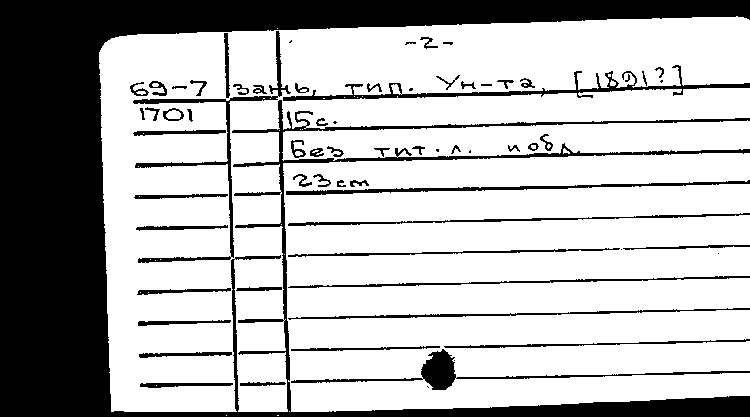 -2-
69-7 зань, тип. Ун-та, [1891?]
1701 15с.
Без тит.л. и обл.
23cm